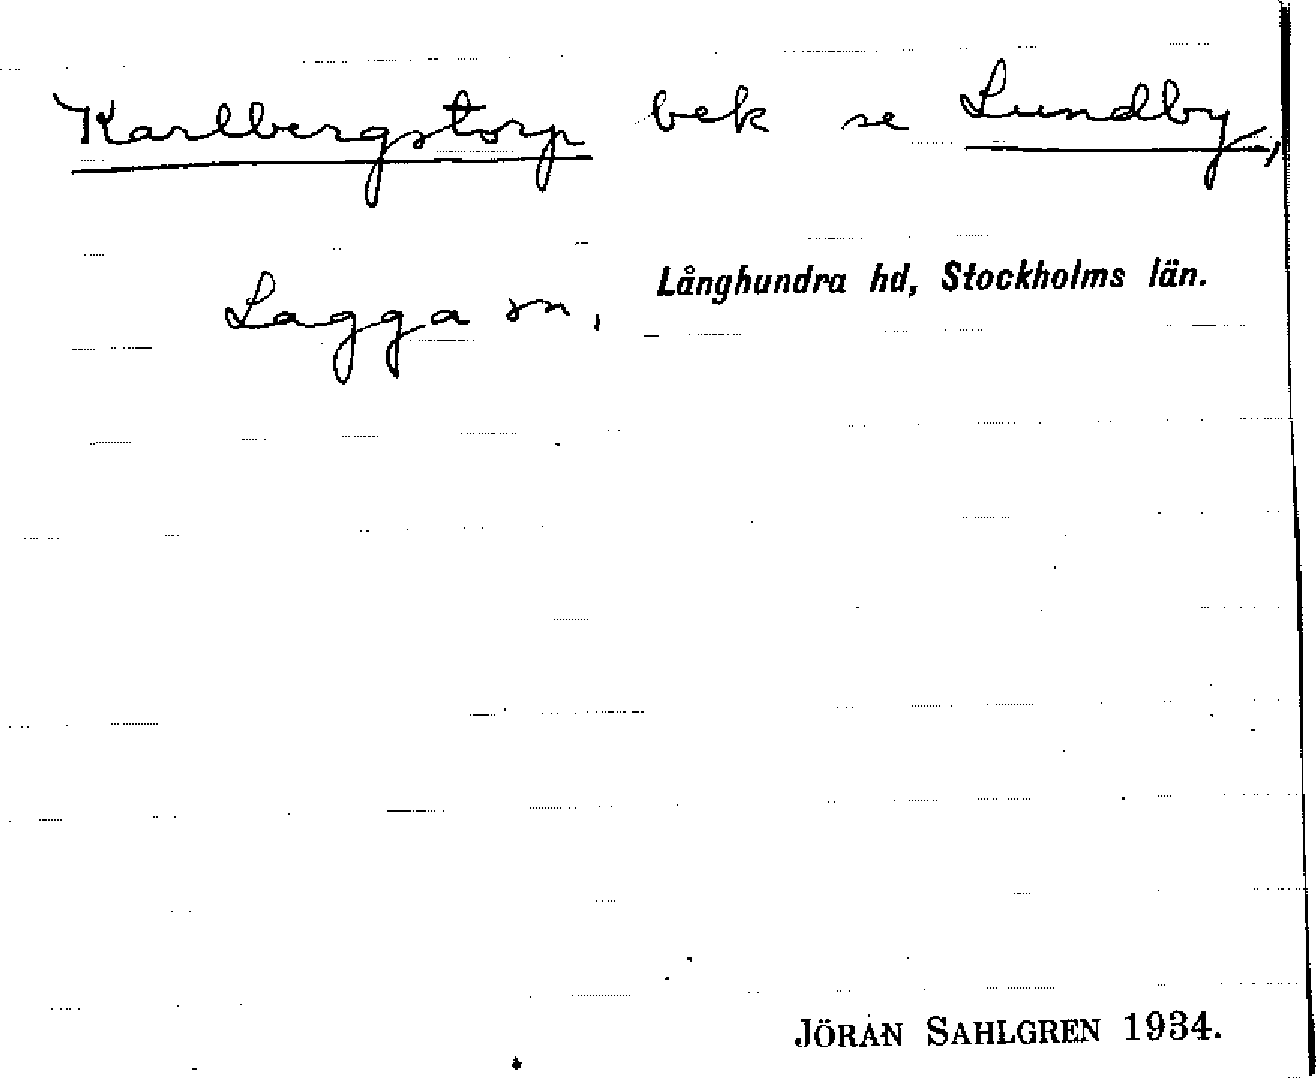 Karlbergstorp bek se Lundby,
Lagga sn, Långhundra hd, Stockholms län.
JÖRAN SAHLGREN 1934.